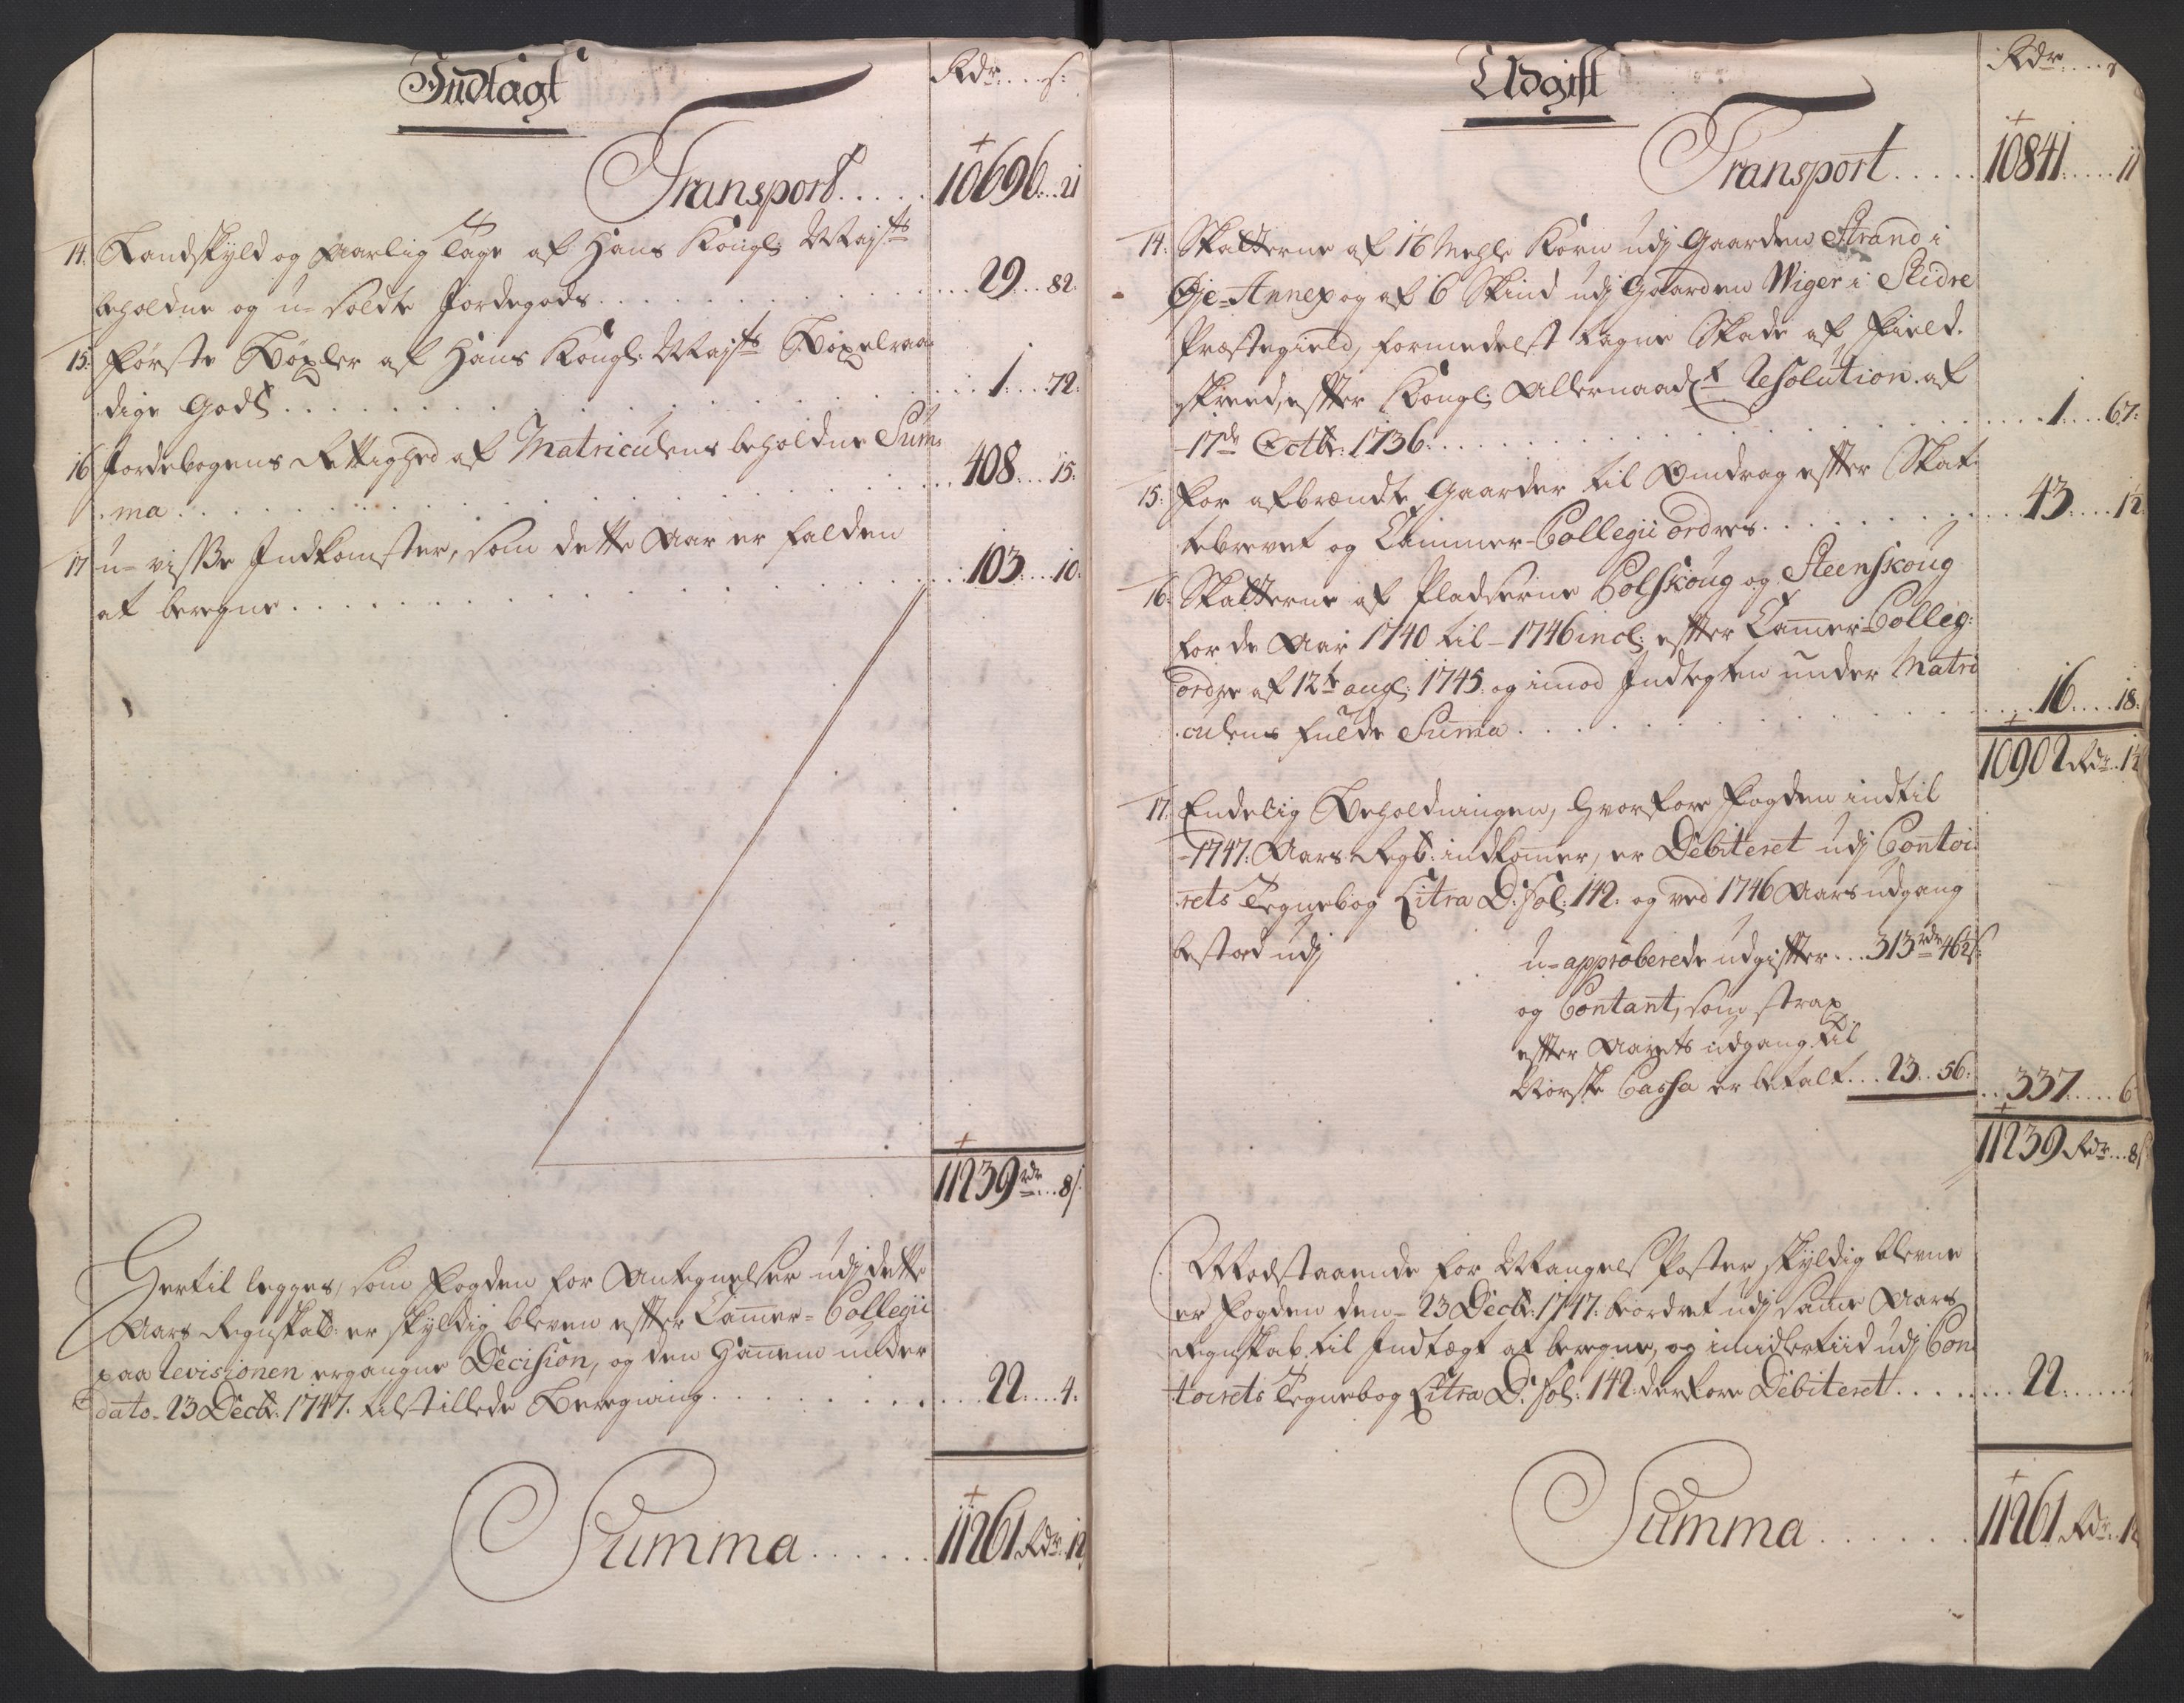 Indtägt
Rdr. . . . s:
Transport. . . . . 10696. . . 21
14. Landskyld og Aarlig Tage af Hans Kongl: Mayts
beholdne og u-solte Jordegods . . . . 29. . . 82.
15: Første Böxler af Hans Kongl: Mayts Böxelraa-
dige Gods . . . . 1. . . 72:
16 Jordebogens Rettighed af Matriculens beholdne Sum-
ma . . . . 408. . . 15:
17 u-visse Indkomster, som dette Aar er falden
at beregne . . . . 103. . . 10.
11239 rdr. . . 8 s.
Hertil legges, som Fogden for Antegnelser udj dette
Aars Regnskab: er skyldig bleven effter Camer-Collegii
paa Revisionen ergangne Decision, og den Hannem under
dato. 23 Decbr: 1747. tilstillede Beregning . . . . 22. . . 4.
Summa . . . . . . 11261 Rdr. 12
Udgift
Rdr. . . . s
Transport . . . . . 10841. . . . 11
14: Skatterne af 16 Mehle Korn udj Gaarden Strand i
Øje-Annex og af 6 Skind udj Gaarden Wiger i Slidre
Præstegield, formedelst tagne Skade af Field-
skreed, effter Kongl: Allernaadst Resolution af
17de Octbr: 1736. . . . . 1. . . 67:
15: For afbrændte Gaarder til Omdrag effter Skat-
tebrevet og Cammer-Collegii ordres . . . . 43. . . 12.
16: Skatterne af Pladserne Colskoug og Steenskoug
for de Aar 1740 til 1746 incl: effter Camer-Colleg:
ordre af 12te aug: 1745. og imod Indtegten under Matri-
culens fulde Summa . . . . 16. . . 18.
10902 Rdr. . 12
17: Endelig Beholdningen, hvorfore Fogden indtil
1747. Aars Regb: indkommer, er Debiteret udj Contoi-
rets Tegnebog Litra D: fol: 142. og ved 1746 Aars udgang
bestod udj
u-approberede udgiffter . . . 313 rdr 46½ s:
og Contant, som strax
effter Aarets udgang til
Norske Cassa er betalt . . . 23. . 56: . . 337. . . . 6
11239 Rdr. . . 8 s
Modstaaende for Mangels Poster skyldig blevne
er Fogden den 23 Decbr: 1747. beordret udj samme Aars
Regnskab til Indtægt at beregne, og imidlertiid udj Con-
toirets Tegnebog Litra D: fol: 142. derfore Debiteret . . . . 22. . . .
Summa . . . . . . 11261 Rdr. 12